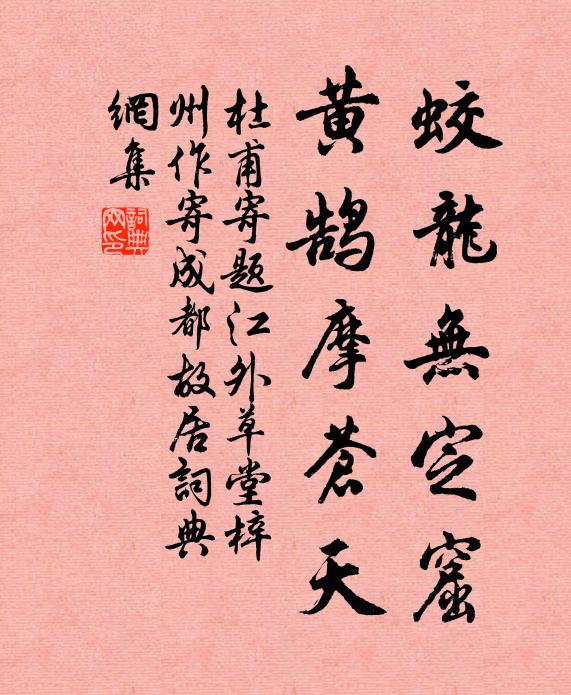 蛟龍無定窟
黄鹄摩蒼天
杜甫寄題江外草堂梓
州作寄成都故居詞典
網集
詞典
网印